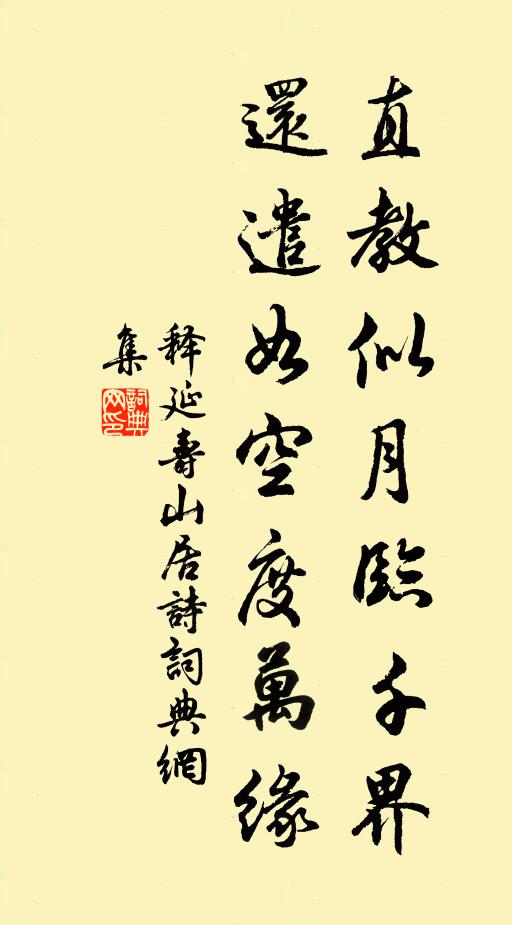 直教似月臨千界
還遣如空度萬緣
释延壽山居詩詞典網
集
詞典
网印